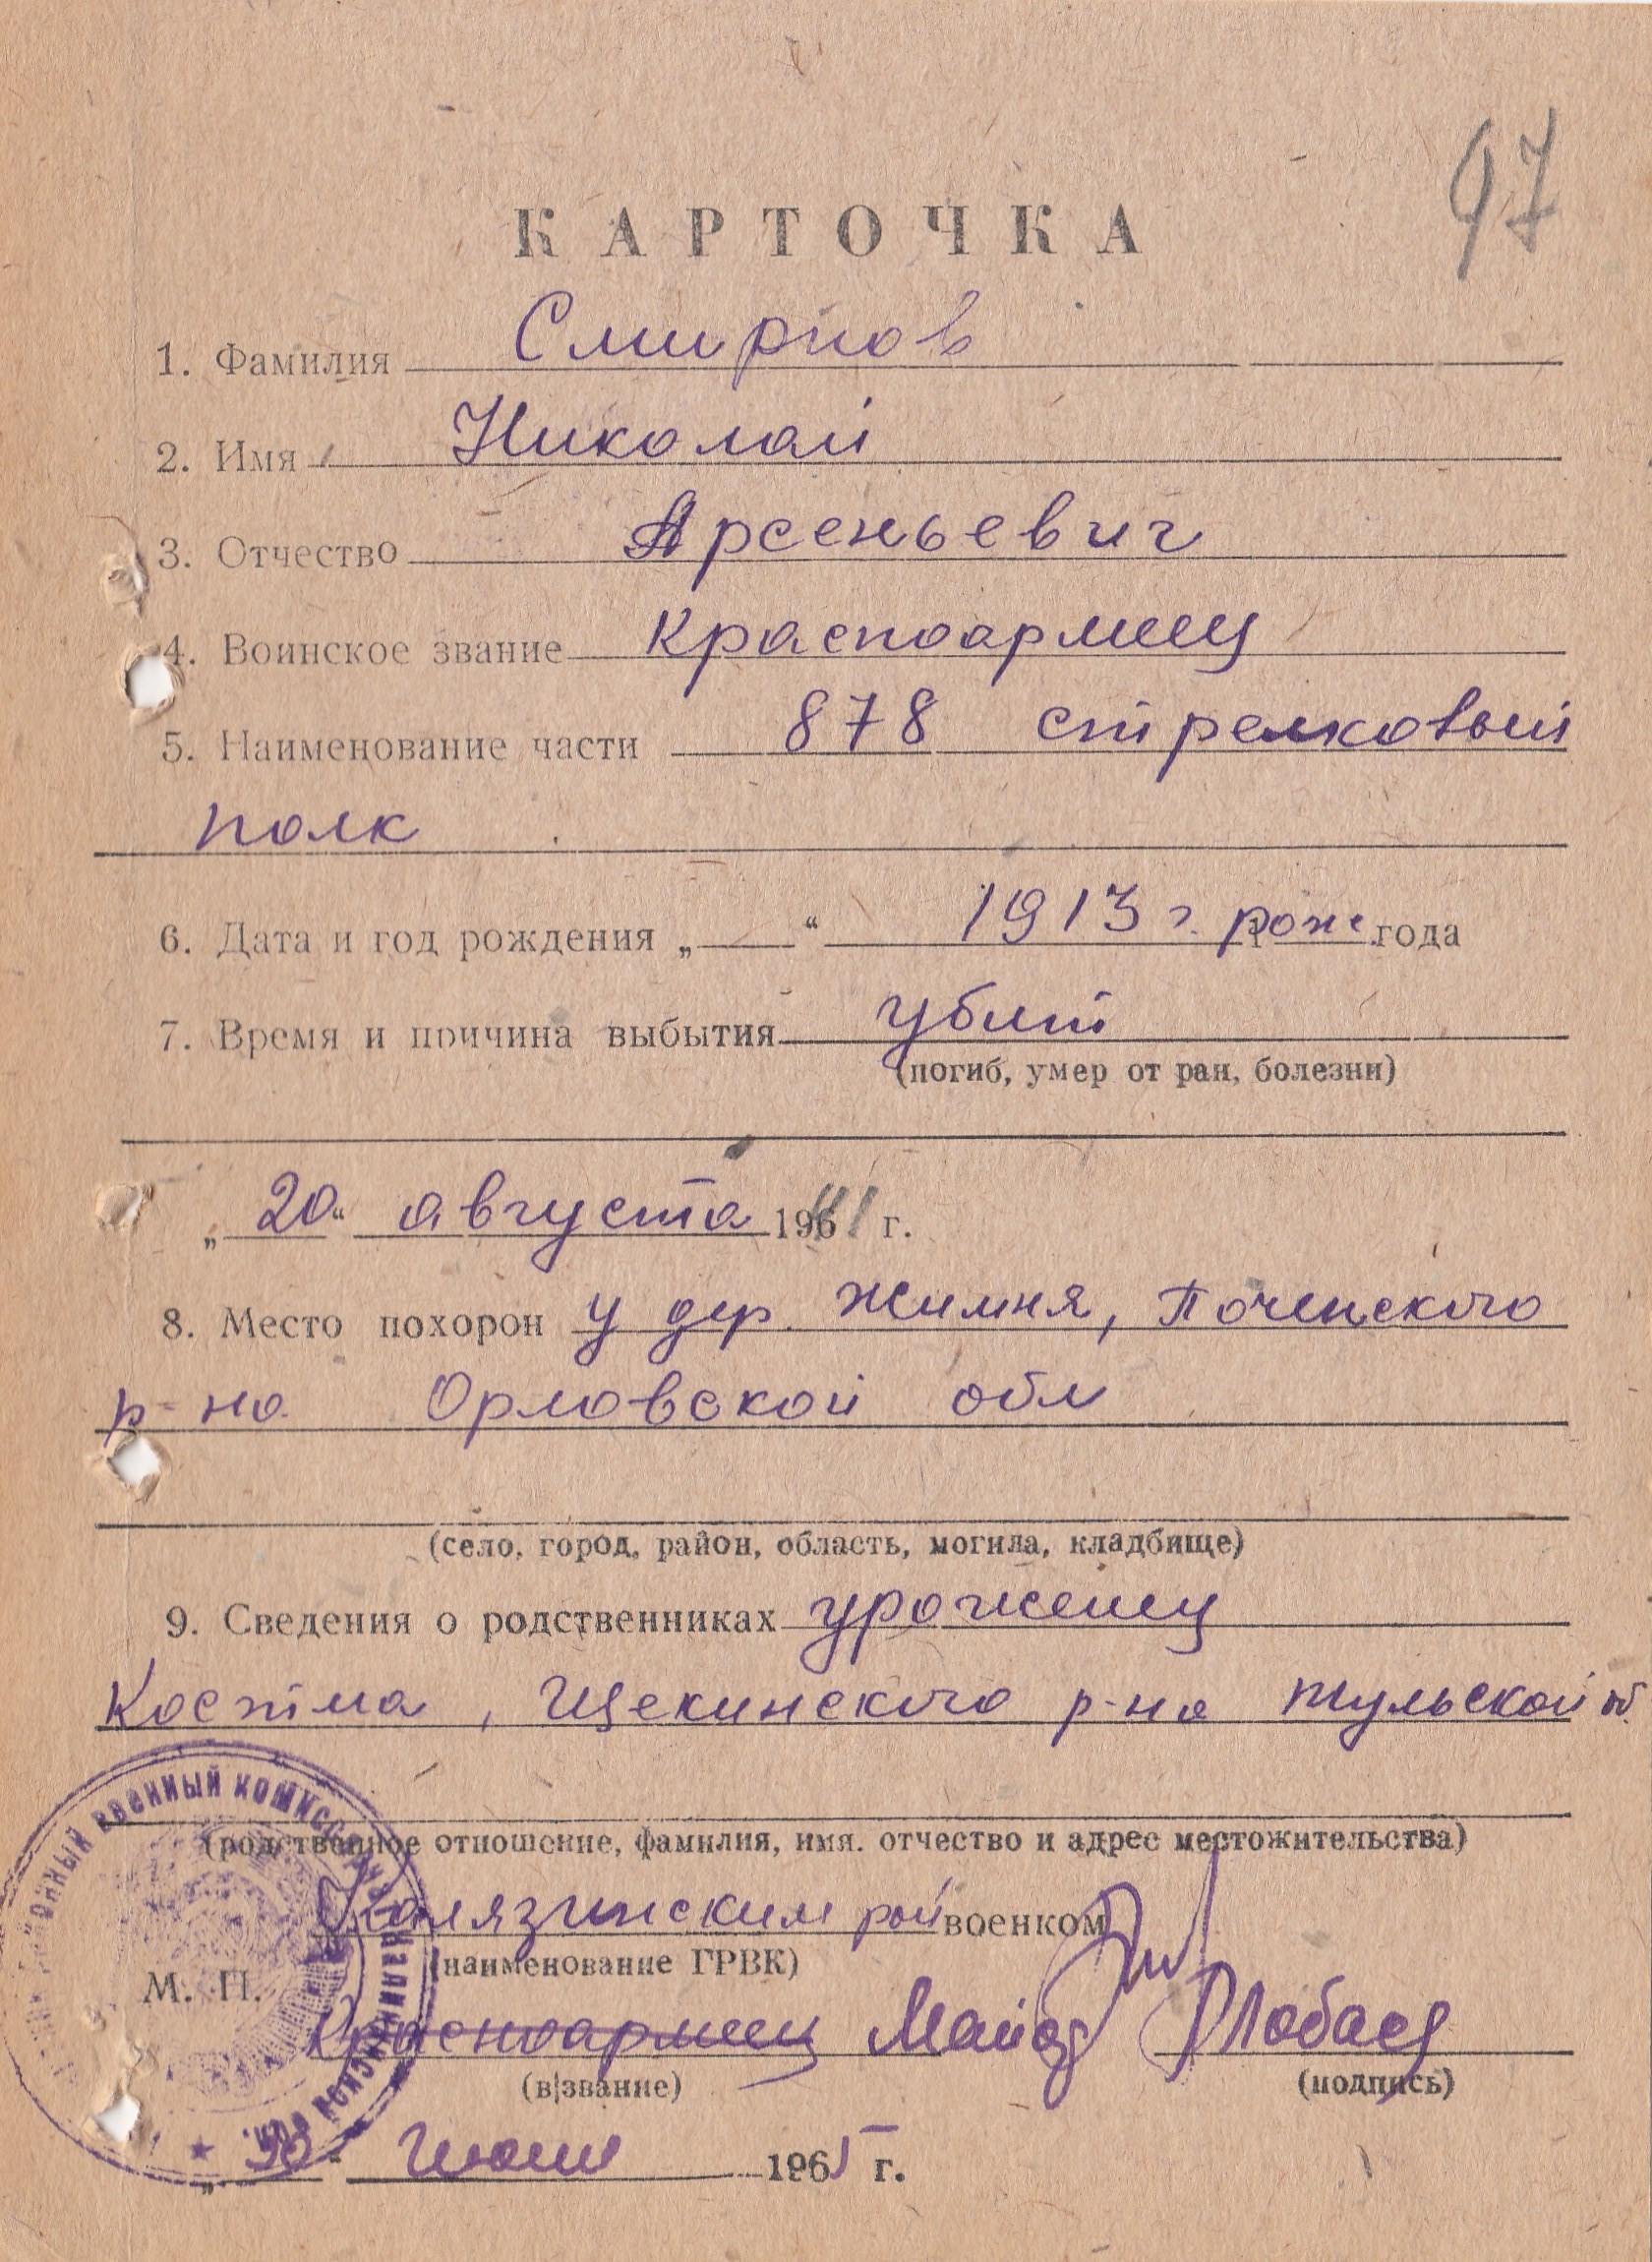 97
КАРТОЧКА
1. Фамилия Смирнов
2. Имя Николай
3. Отчество Арсеньевич
4. Воинское звание красноармеец
5. Наименование части 878 стрелковый
полк
6. Дата и год рождения „ — “ 1913 г. рож. года
7. Время и причина выбытия убит
(погиб, умер от ран, болезни)
„20“ августа 1941 г.
8. Место похорон у дер. Жимня, Почепского
р-на Орловской обл
(село, город, район, область, могила, кладбище)
9. Сведения о родственниках уроженец
Щекинского р-на Тульской об.
(родственное отношение, фамилия, имя. отчество и адрес местожительства)
Калязинским рай военком
(наименование ГРВК)
М. П.
Красноармеец Майор
(в/звание) (подпись)
„30“ 1965 г.
РАЙОННЫЙ ВОЕННЫЙ КОМИССАРИАТ КАЛИНИНСКОЙ ОБЛ.